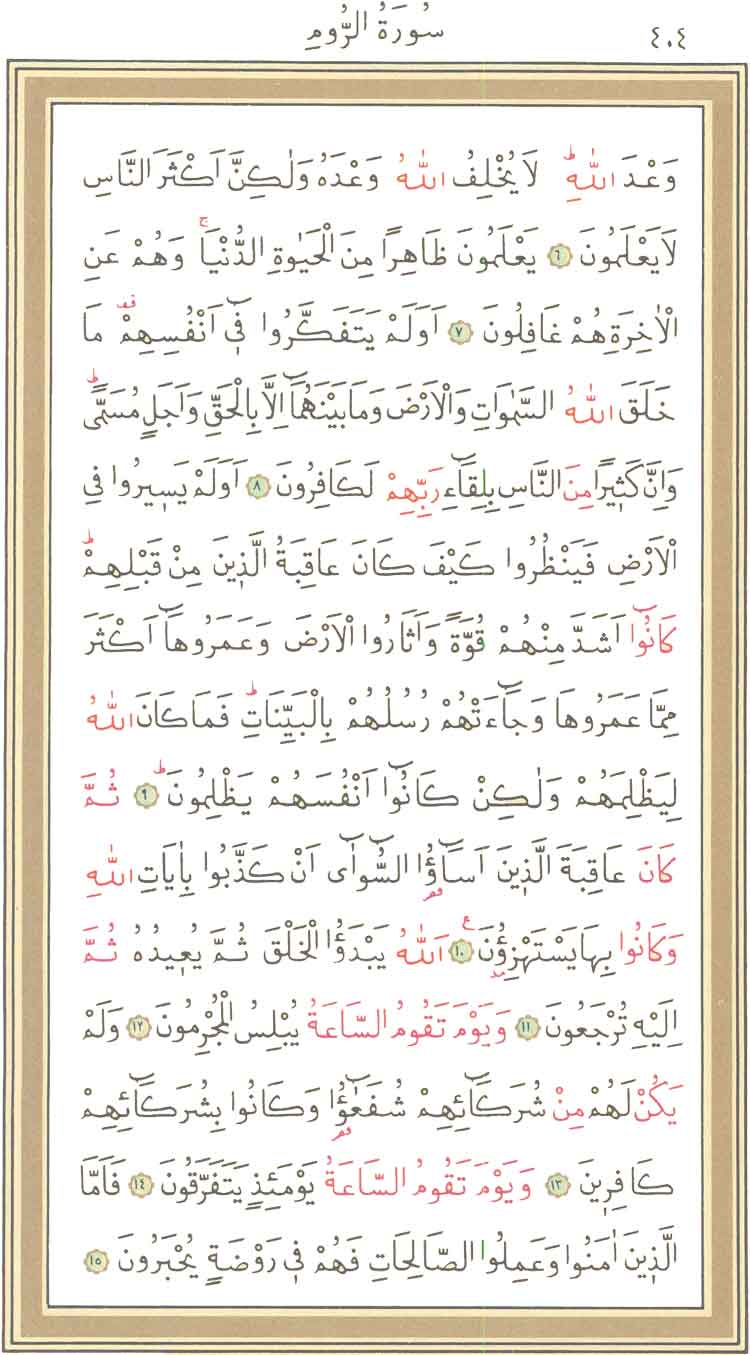 سُورَةُ الرُّومِ ٤٠٤
وَعْدَ اللّٰهِۜ لَا يُخْلِفُ اللّٰهُ وَعْدَهُ وَلٰكِنَّ اَكْثَرَ النَّاسِ
لَا يَعْلَمُونَ ﴿٦﴾ يَعْلَمُونَ ظَاهِرًا مِنَ الْحَيٰوةِ الدُّنْيَاۚ وَهُمْ عَنِ
الْاٰخِرَةِ هُمْ غَافِلُونَ ﴿٧﴾ اَوَلَمْ يَتَفَكَّرُوا ف۪ٓي اَنْفُسِهِمْ۠ مَا
خَلَقَ اللّٰهُ السَّمٰوَاتِ وَالْاَرْضَ وَمَا بَيْنَهُمَٓا اِلَّا بِالْحَقِّ وَاَجَلٍ مُسَمًّىۜ
وَاِنَّ كَث۪يرًا مِنَ النَّاسِ بِلِقَٓاءِ رَبِّهِمْ لَكَافِرُونَ ﴿٨﴾ اَوَلَمْ يَس۪يرُوا فِي
الْاَرْضِ فَيَنْظُرُوا كَيْفَ كَانَ عَاقِبَةُ الَّذ۪ينَ مِنْ قَبْلِهِمْۜ
كَانُٓوا اَشَدَّ مِنْهُمْ قُوَّةً وَاَثَارُوا الْاَرْضَ وَعَمَرُوهَٓا اَكْثَرَ
مِمَّا عَمَرُوهَا وَجَٓاءَتْهُمْ رُسُلُهُمْ بِالْبَيِّنَاتِۜ فَمَا كَانَ اللّٰهُ
لِيَظْلِمَهُمْ وَلٰكِنْ كَانُٓوا اَنْفُسَهُمْ يَظْلِمُونَۜ ﴿٩﴾ ثُمَّ
كَانَ عَاقِبَةَ الَّذ۪ينَ اَسَٓاؤُا السُّٓوآٰى اَنْ كَذَّبُوا بِاٰيَاتِ اللّٰهِ
وَكَانُوا بِهَا يَسْتَهْزِؤُ۫نَ ﴿١٠﴾ اَللّٰهُ يَبْدَؤُا الْخَلْقَ ثُمَّ يُع۪يدُهُ ثُمَّ
اِلَيْهِ تُرْجَعُونَ ﴿١١﴾ وَيَوْمَ تَقُومُ السَّاعَةُ يُبْلِسُ الْمُجْرِمُونَ ﴿١٢﴾ وَلَمْ
يَكُنْ لَهُمْ مِنْ شُرَكَٓائِهِمْ شُفَعٰٓؤُا وَكَانُوا بِشُرَكَٓائِهِمْ
كَافِر۪ينَ ﴿١٣﴾ وَيَوْمَ تَقُومُ السَّاعَةُ يَوْمَئِذٍ يَتَفَرَّقُونَ ﴿١٤﴾ فَاَمَّا
الَّذ۪ينَ اٰمَنُوا وَعَمِلُوا الصَّالِحَاتِ فَهُمْ ف۪ي رَوْضَةٍ يُحْبَرُونَ ﴿١٥﴾